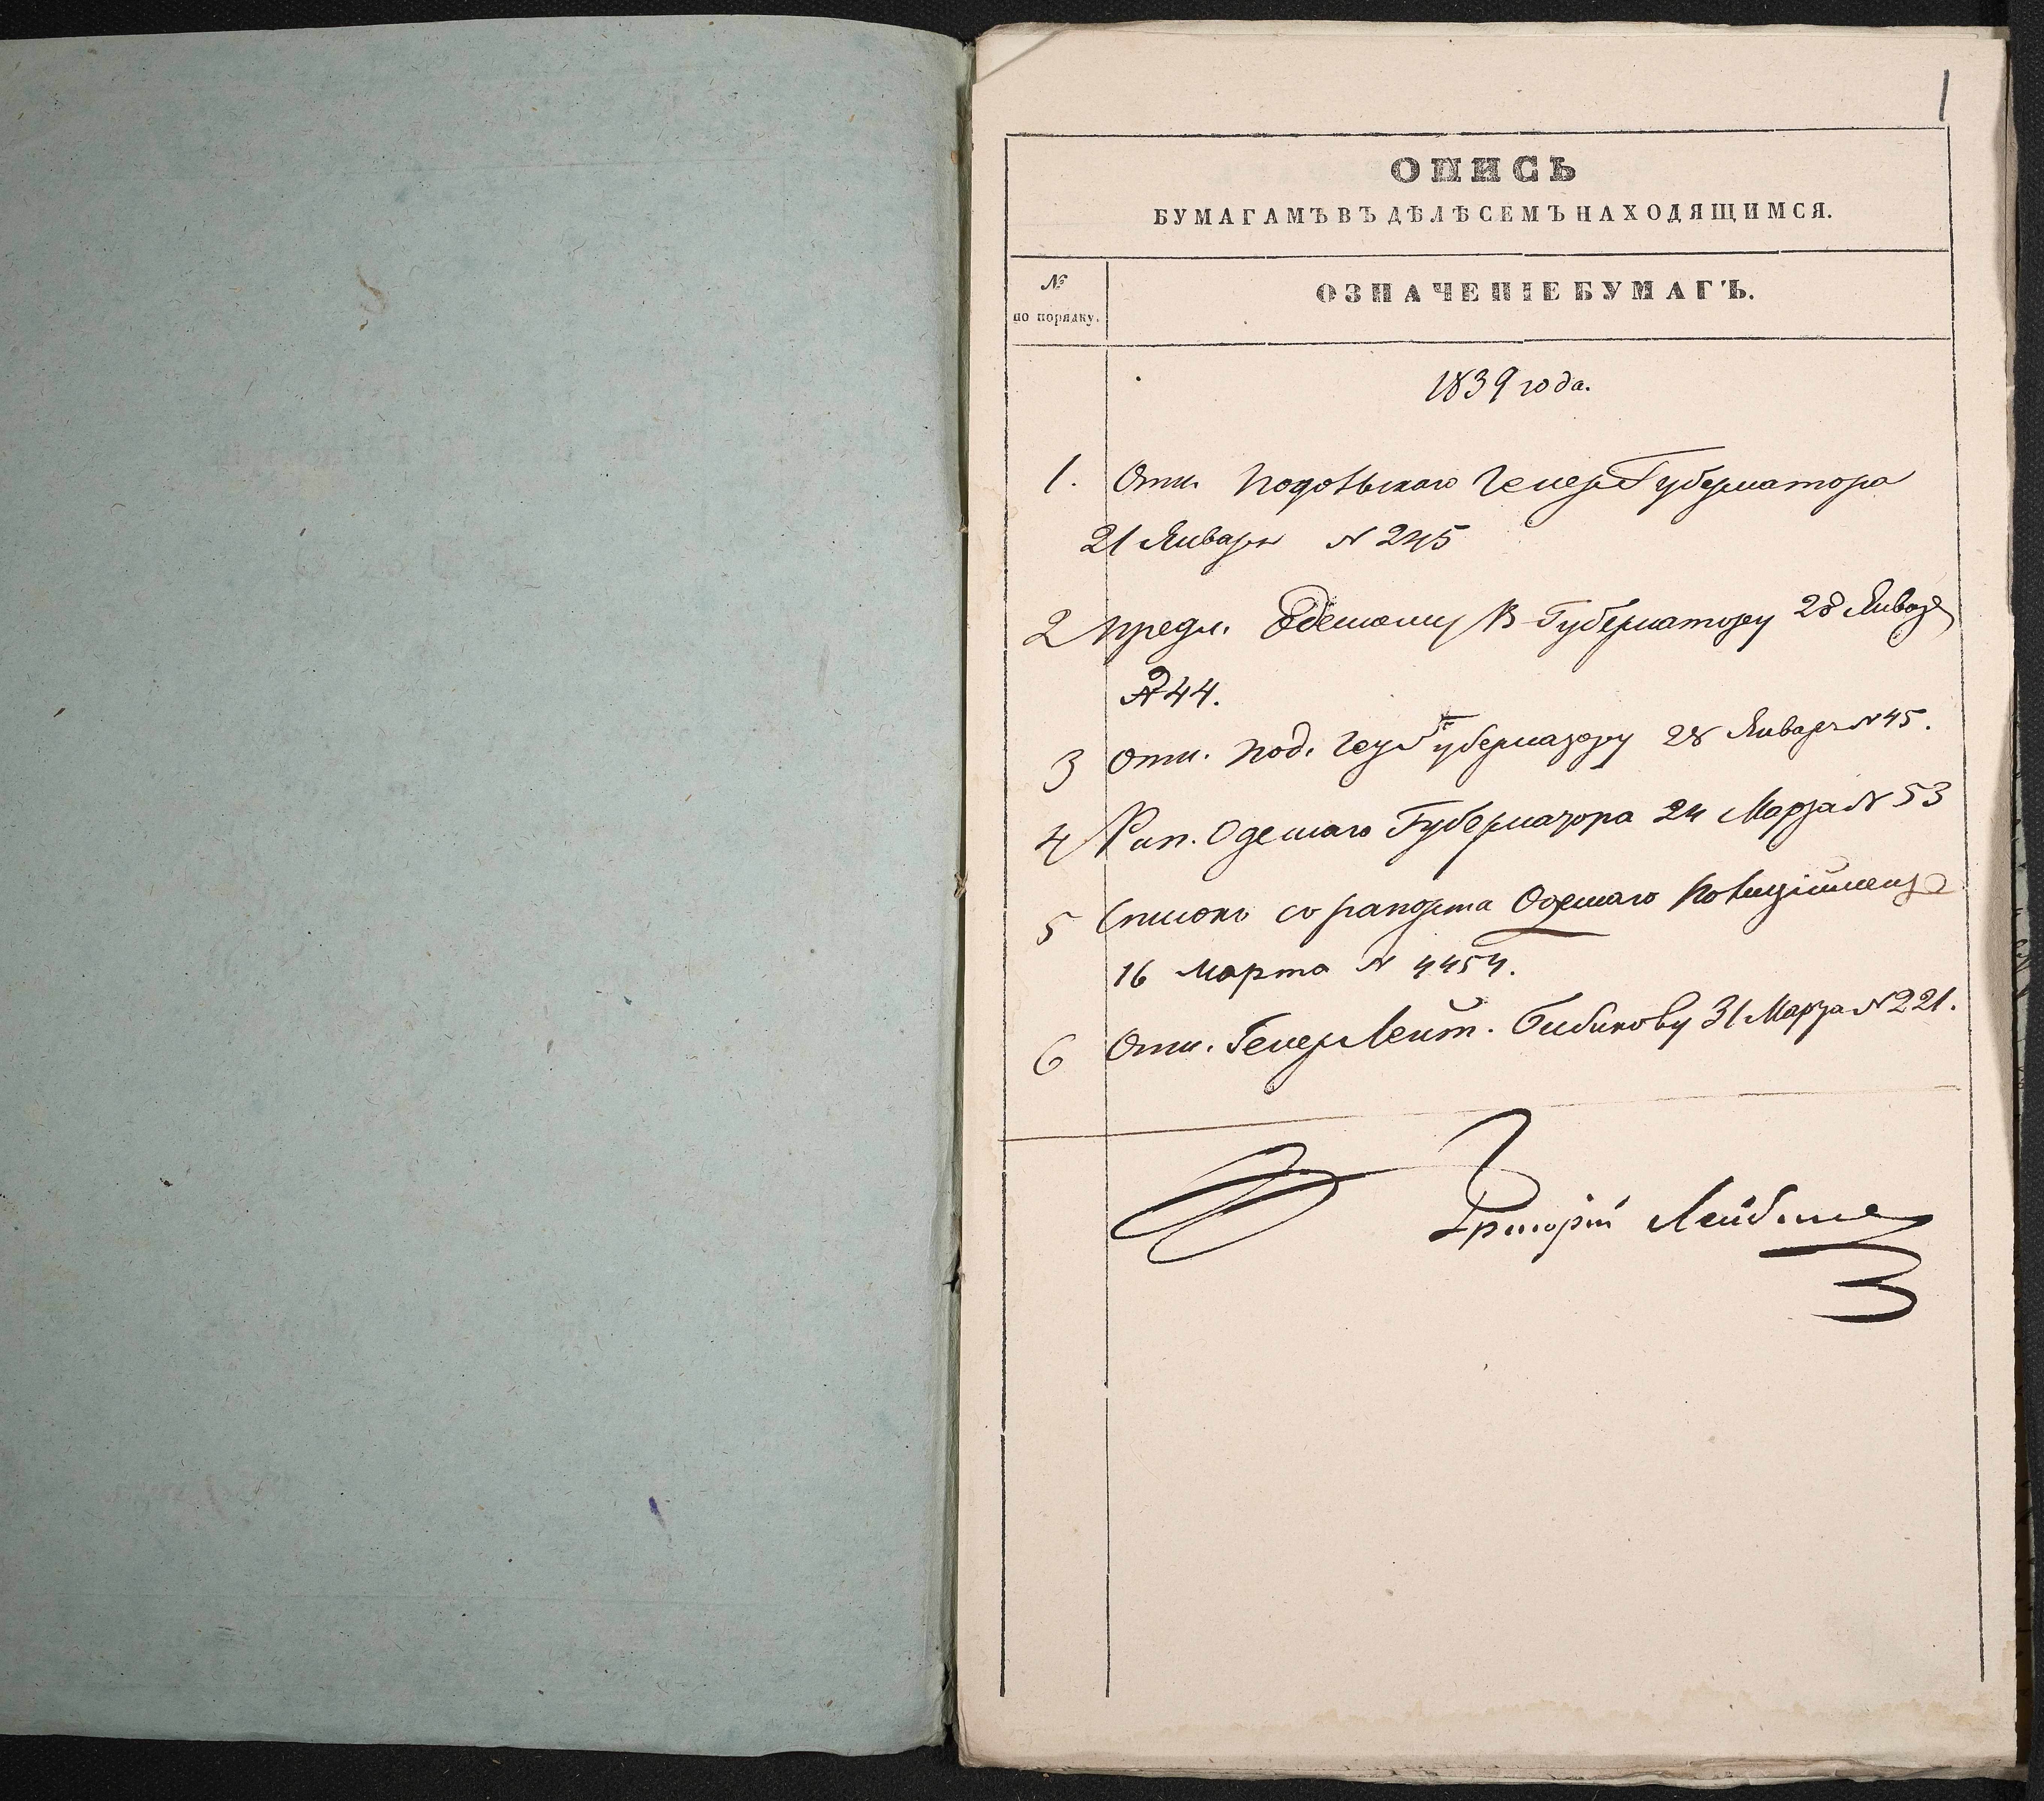 1
ОПИСЬ
БУМАГАМЪ ВЪ ДѢЛѢ СЕМЪ НАХОДЯЩИМСЯ.
№
по порядку.
ОЗНАЧЕНІЕ БУМАГЪ.
1839 года.
1. Отн. Подольскаго Генер Губернатора
21 Января № 245
2 Предл. Одесскому В Губернатору 28 Января
№ 44.
3 Отн. Под. Ген Губернатору 28 Января № 45.
4 Рап. Одесскаго Губернатора 24 Марта № 53
5 Списокъ съ рапорта Одесскаго Полиціймейстера
16 Марта № 4454.
6 Отн. Генер Лейт. Бибикову 31 Марта № 221.
Григорій